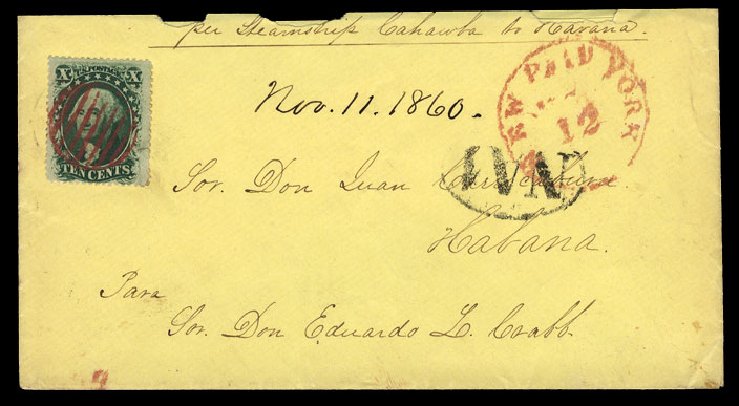 per Steamship Cahawba to Havana.
X X
TEN CENTS
Nov. 11. 1860.
NEW PAID YORK
12
NA1
Sor. Don Juan
Habana.
Para
Sor. Don Eduardo L. Crabb.